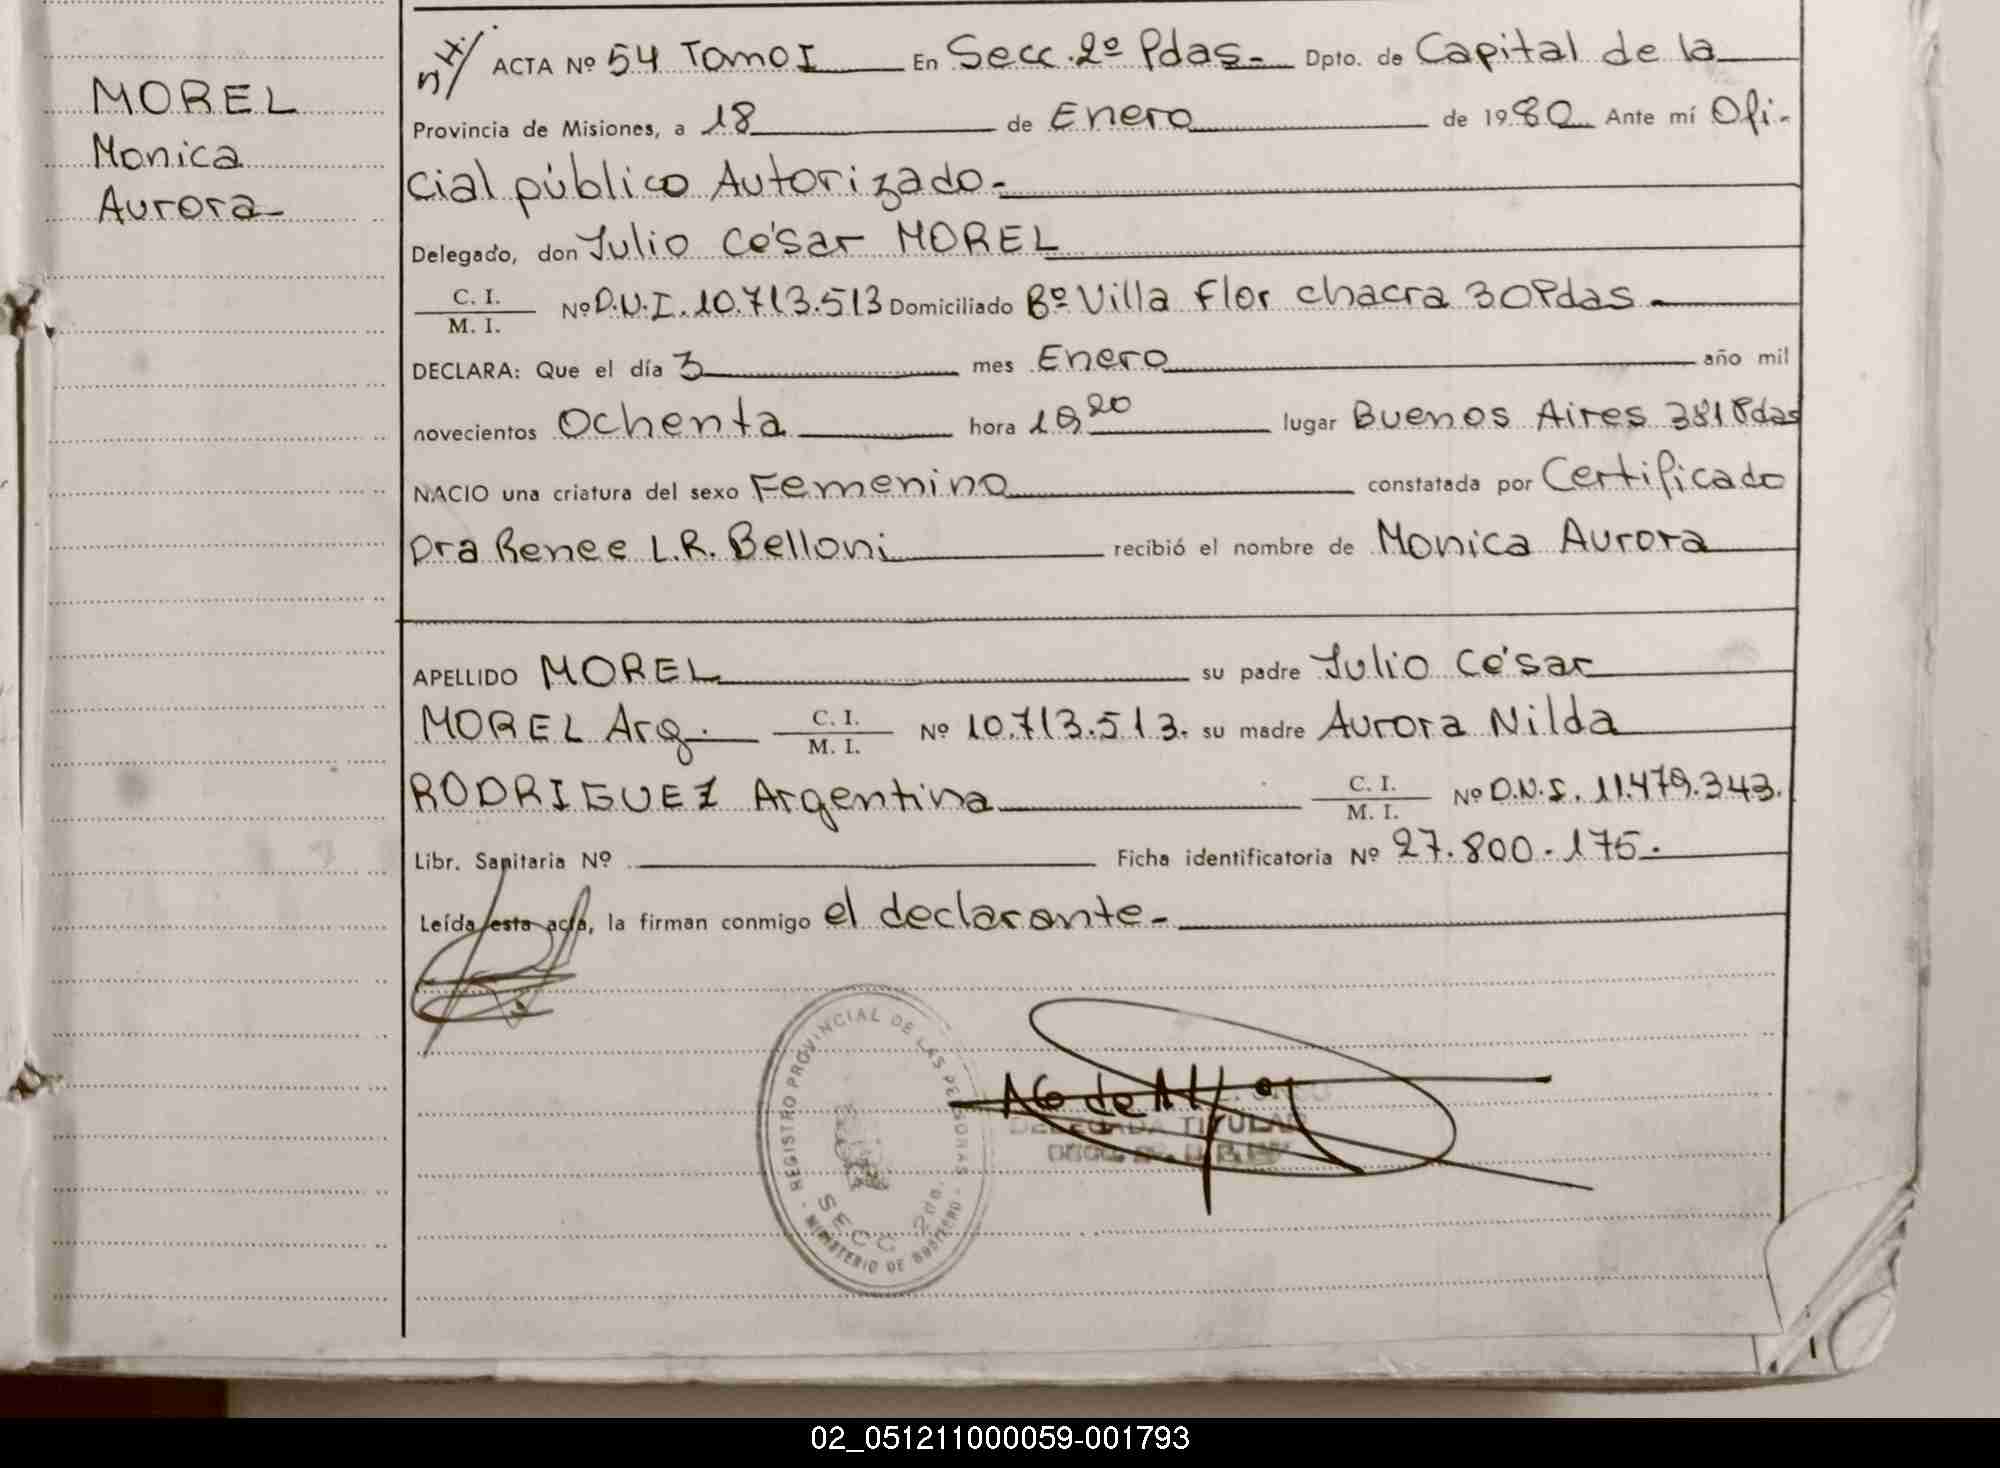 MOREL
Monica
Aurora-
54/ ACTA Nº 54 Tomo I En Secc. 2º Pdas- Dpto. de Capital de la
Provincia de Misiones, a 18 de Enero de 1980 Ante mí Ofi-
cial público Autorizado-
Delegado, don Julio César MOREL
C. I.
M. I.
Nº D.N.I. 10.713.513 Domiciliado Bº Villa Flor chacra 30 Pdas-
DECLARA: Que el día 3 mes Enero año mil
novecientos Ochenta hora 19 20 lugar Buenos Aires 381 Pdas
NACIO una criatura del sexo Femenino constatada por Certificado
Dra Renee L.R. Belloni recibió el nombre de Monica Aurora
APELLIDO MOREL su padre Julio César
MOREL Arg. C. I. M. I. Nº 10.713.513. su madre Aurora Nilda
RODRIGUEZ Argentina C. I. M. I. Nº D.N.I. 11.479.343.
Libr. Sanitaria Nº Ficha identificatoria Nº 27.800.175.
Leída esta acta, la firman conmigo el declarante-
REGISTRO PROVINCIAL DE LAS PERSONAS
SECC 2da.
MINISTERIO DE GOBIERNO
DELEGADA TITULAR
02_051211000059-001793